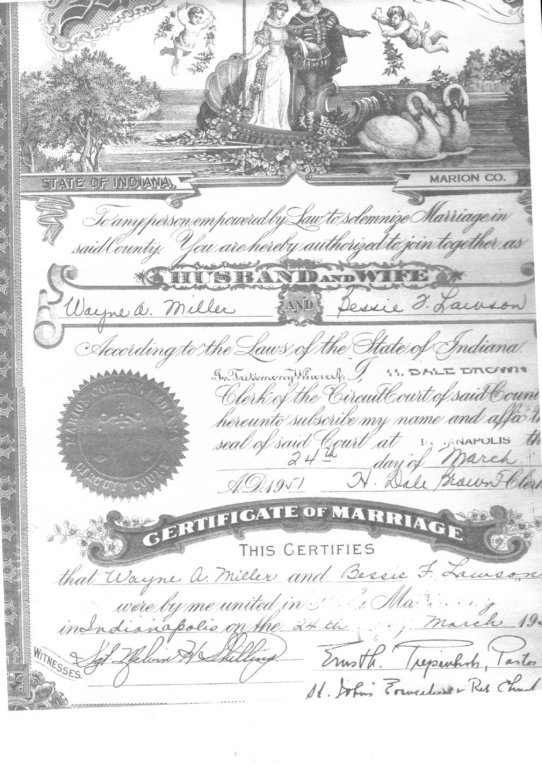 STATE OF INDIANA,
MARION CO.
To any person empowered by Law to solemnize Marriage in
said County. You are hereby authorized to join together as
HUSBAND AND WIFE
Wayne A. Miller AND Bessie F. Lawson
According to the Laws of the State of Indiana
In Testimony Whereof, I H. DALE BROWN
Clerk of the Circuit Court of said Coun
hereunto subscribe my name and affix t
seal of said Court at th
24th day of March
A.D. 1951 H. Dale Brown Clerk
CIRCUIT COURT
CERTIFICATE OF MARRIAGE
THIS CERTIFIES
that Wayne A. Miller and Bessie F. Lawson
were by me united in
in Indianapolis on the 24th March 19
WITNESSES
Sgt. Melvin H. Shilling
Pastor
St. John's Evangelical Ref. Church